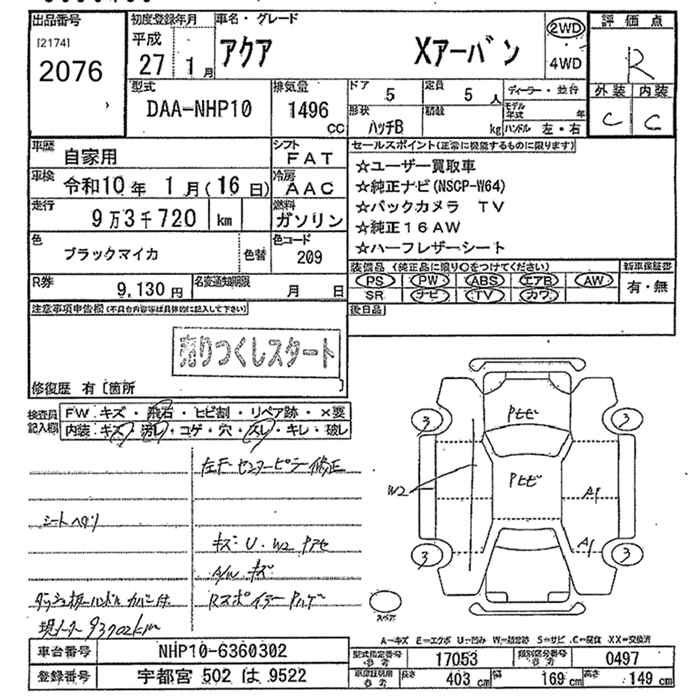 出品番号
[2174]
2076
初度登録年月
平成
27 1月
車名・グレード
アクア Xアーバン
2WD
4WD
評価点
R
外装 内装
C C
型式
DAA-NHP10
排気量
1496
CC
ドア 5
定員 5 人
形状
ハッチB
積載
kg
ディーラー・並行
モデル年式 年
ハンドル 左・右
車歴
自家用
シフト
FAT
車検
令和10年 1月(16日)
冷房
AAC
走行
9万3千720 km
燃料
ガソリン
色
ブラックマイカ
色替
色コード
209
R券
9,130円
名変通知期限
月 日
セールスポイント(正常に機能するものに限ります)
☆ユーザー買取車
☆純正ナビ(NSCP-W64)
☆バックカメラ TV
☆純正16AW
☆ハーフレザーシート
装備品 (純正品に限り○をつけてください)
PS PW ABS エアB AW
SR ナビ TV カワ
新車保証書
有・無
後日品
注意事項申告欄(不具合内容等は具体的に記入して下さい)
売りつくしスタート
修復歴 有 [箇所
検査員記入欄
FW:キズ・飛石・ヒビ割・リペア跡・×要
内装:キズ・汚れ・コゲ・穴・スレ・キレ・破レ
左F センターピラー修正
シートヘタリ
キズ・U・W2 Pアセ
A/W キズ
ダッシュ板ハンドルカバー付
Rスポイラー
現メーター93702km
Pヒビ
Pヒビ
3
3
3
3
W2
A1
A1
スペア
A=キズ E=エクボ U=凹み W=補修跡 S=サビ C=腐食 XX=交換済
車台番号
NHP10-6360302
登録番号
宇都宮 502 は 9522
型式指定番号
参考
17053
類別区分番号
参考
0497
車検証利用
参考
長さ
403 cm
幅
169 cm
高さ
149 cm